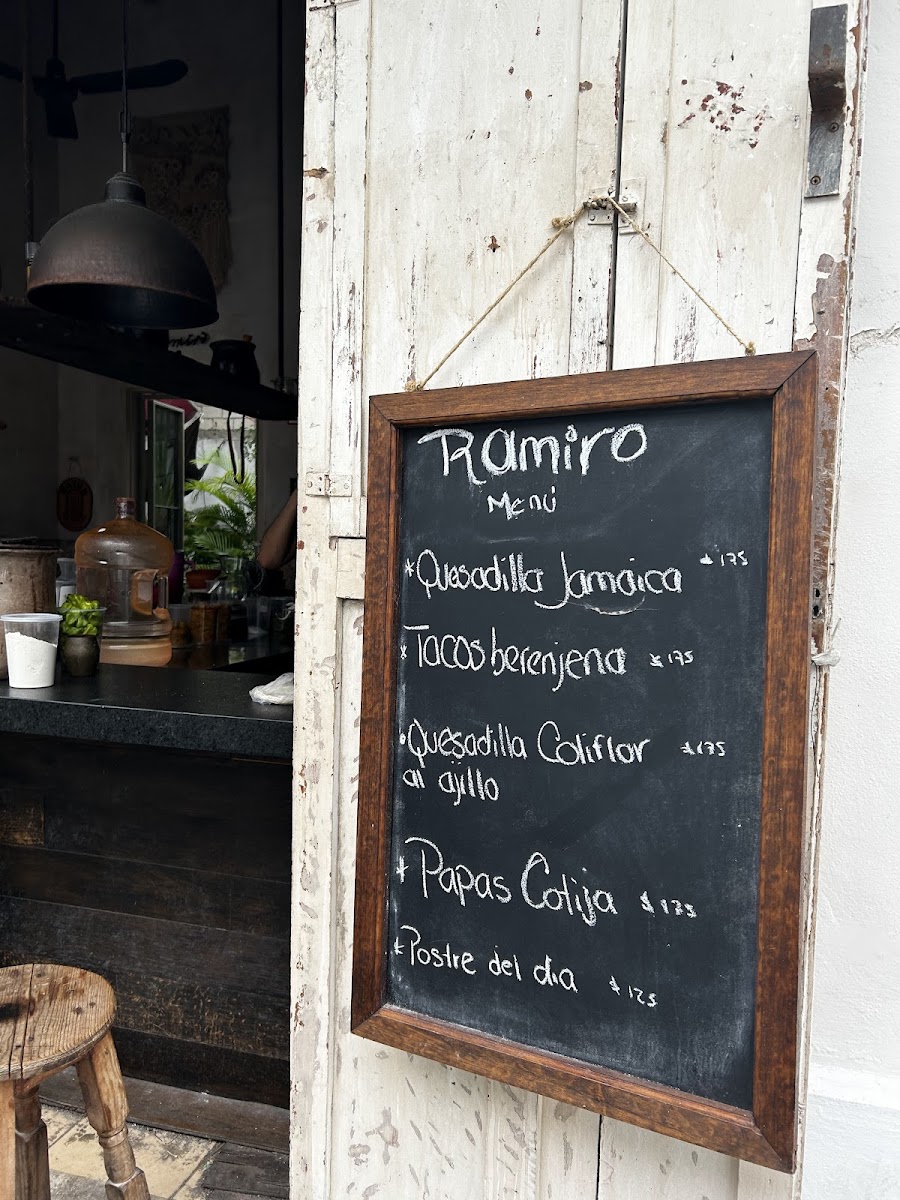 Ramiro
Menú
*Quesadilla Jamaica $175
*Tacos berenjena $175
•Quesadilla Coliflor $175
al ajillo
*Papas Cotija
*Postre del día $125